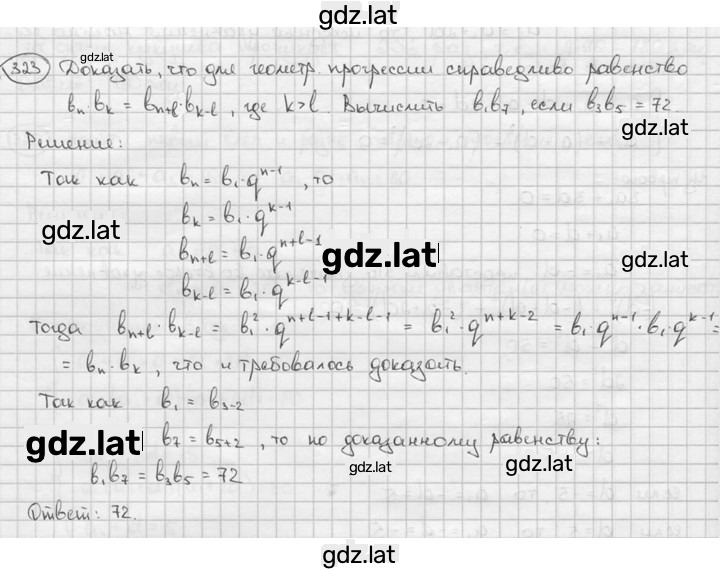 gdz.lat
323 Доказать, что для геометр. прогрессии справедливо равенство
gdz.lat
bₙ·bₖ = bₙ₊ₗ·bₖ₋ₗ, где k>l. Вычислить b₁b₇, если b₃b₅ = 72.
gdz.lat
Решение:
Так как bₙ = b₁·qⁿ⁻¹, то
bₖ = b₁·qᵏ⁻¹
gdz.lat
bₙ₊ₗ = b₁·qⁿ⁺ˡ⁻¹
gdz.lat
gdz.lat
bₖ₋ₗ = b₁·qᵏ⁻ˡ⁻¹
Тогда bₙ₊ₗ·bₖ₋ₗ = b₁²·qⁿ⁺ˡ⁻¹⁺ᵏ⁻ˡ⁻¹ = b₁²·qⁿ⁺ᵏ⁻² = b₁·qⁿ⁻¹·b₁·qᵏ⁻¹ =
= bₙ·bₖ, что и требовалось доказать.
Так как b₁ = b₃₋₂
gdz.lat
b₇ = b₅₊₂, то по доказанному равенству:
gdz.lat
gdz.lat
b₁b₇ = b₃b₅ = 72
Ответ: 72.
gdz.lat